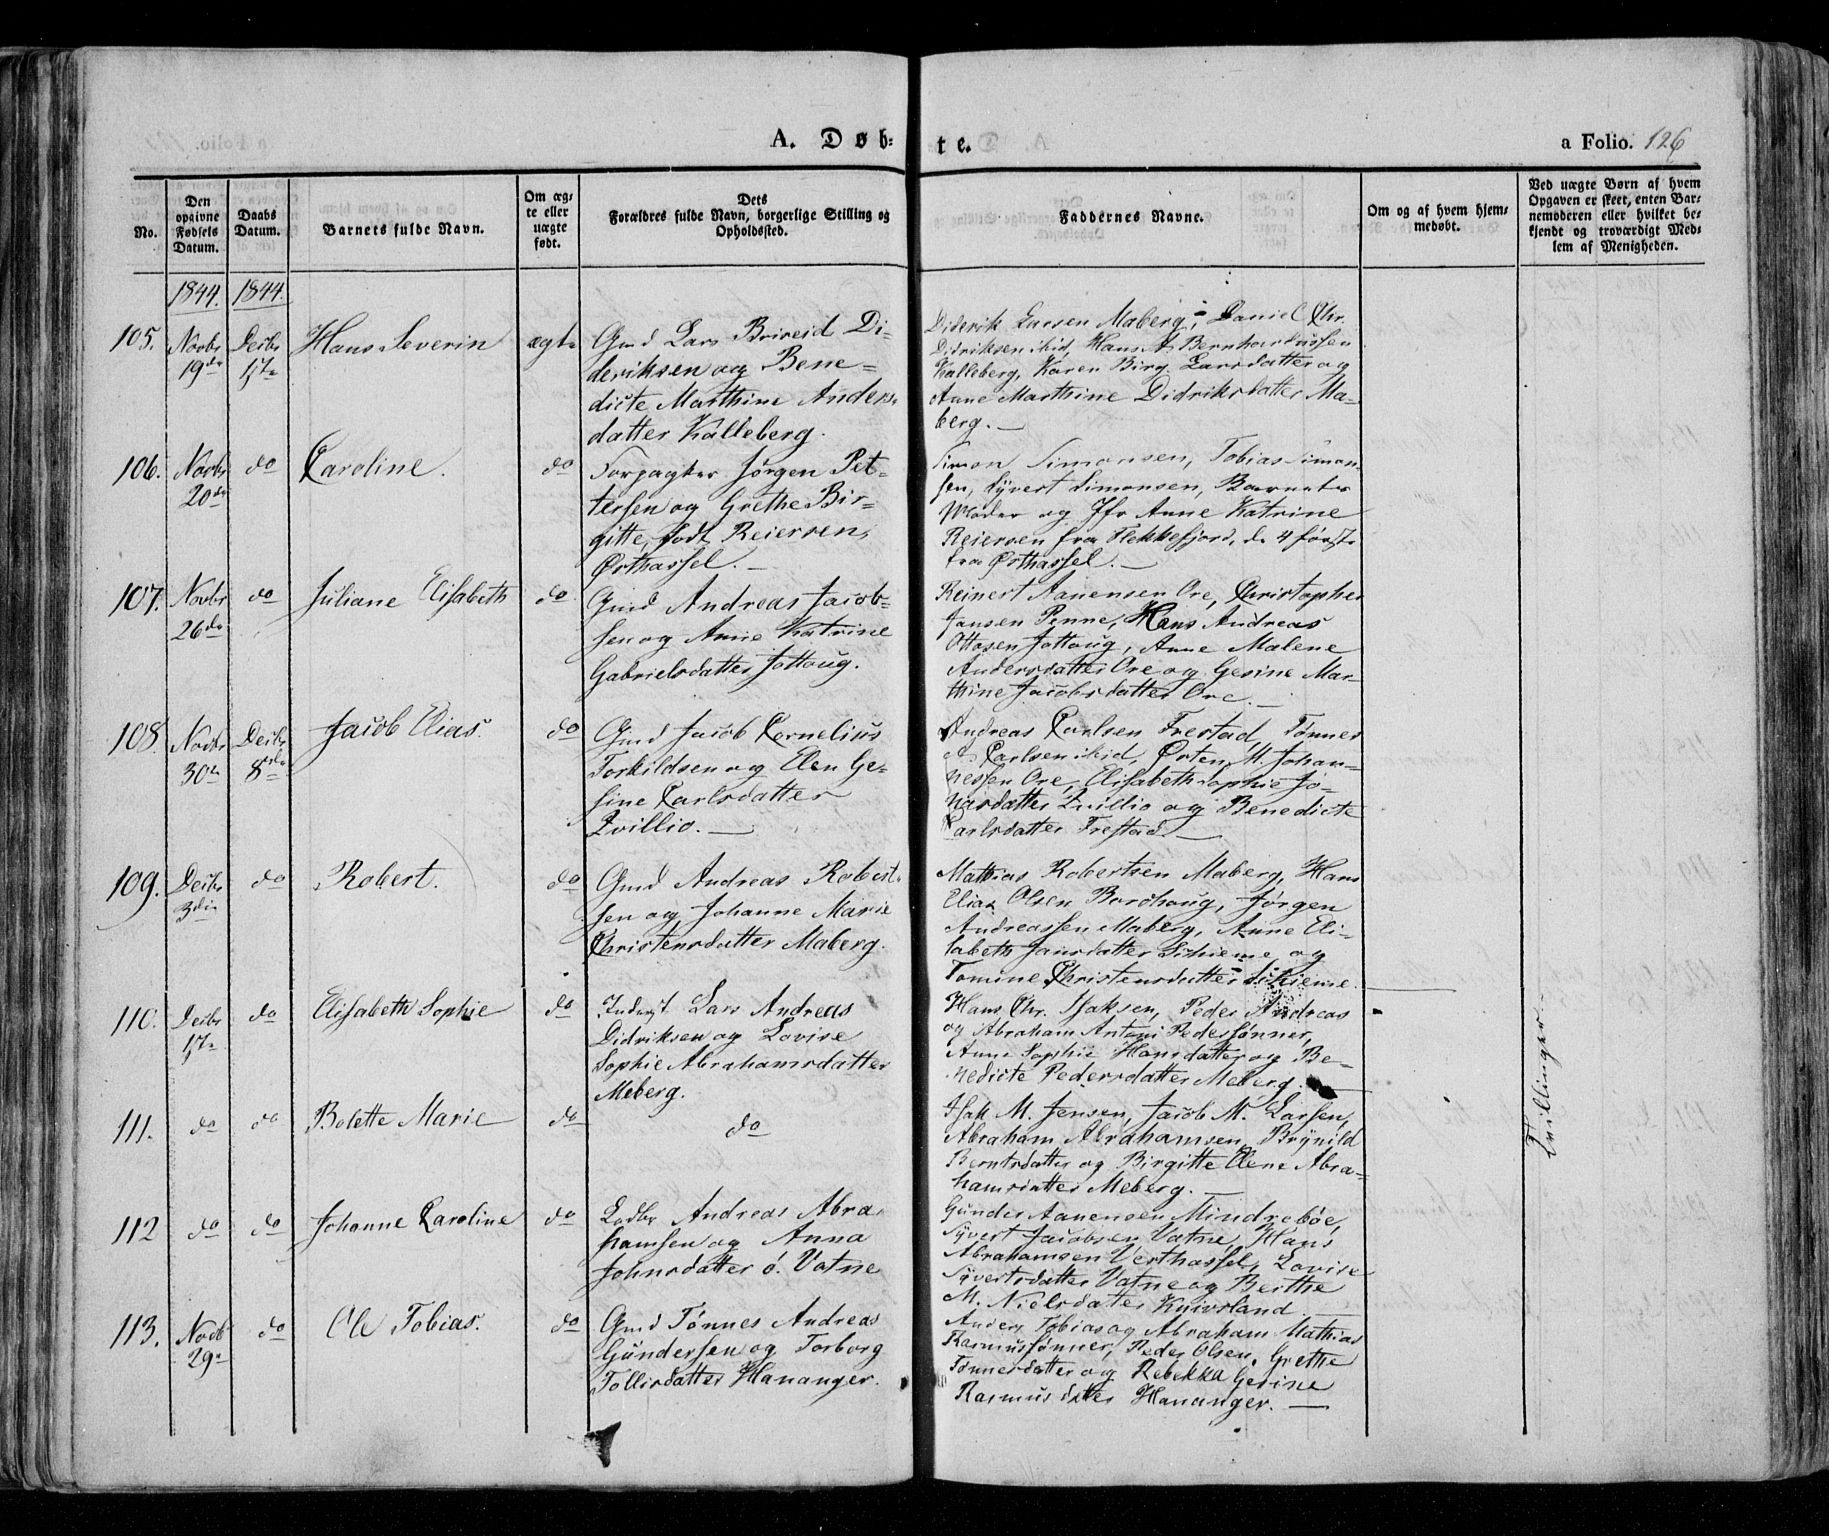 A. Døb-te.
a Folio. 126
No.
Den opgivne Fødsels Datum.
Daabs Datum.
Barnets fulde Navn.
Om ægte eller uægte født.
Dets Forældres fulde Navn, borgerlige Stilling og Opholdssted.
Faddernes Navne.
Om og af hvem hjemmedøbt.
Ved uægte Børn af hvem Opgaven er skeet, enten Barnemoderen eller hvilket bekjendt og troværdigt Medlem af Menigheden.
1844. 1844.
105. Novbr 19de Decbr 1ste Hans Severin ægte
Gmd Lars Brireid Di-
deriksen og Bene-
dicte Marthine Anders-
datter Kalleberg.
Diderik Larsen Maberg, Daniel Chr.
Didriksen ibid, Hans A Bernhardussen
Kalleberg, Karen Birg. Larsdatter og
Anne Marthine Didriksdatter Ma-
berg. —
106. Novbr 20de do Caroline. do
Forpagter Jørgen Pet-
tersen og Grethe Bir-
gitte, født Reiersen,
Østhassel. —
Simon Simonsen, Tobias Simon-
sen, Syvert Simonsen, Barnets
Moder og Jfr Anne Katrine
Reiersen fra Flekkefjord, de 4 første
fra Østhassel. —
107. Novbr 26de do Juliane Elisabeth do
Gmd Andreas Jacob-
sen og Anne Katrine
Gabrielsdatter Jølloug.
Reinert Aanensen Ore, Christopher
Jansen Penne, Hans Andreas
Ottosen Jølloug, Anne Malene
Andersdatter Ore og Gesine Mar-
thine Jacobsdatter Ore. —
108. Novbr 30te Decbr 8de Jacob Elias. do
Gmd Jacob Cornelius
Torkildsen og Elen Ge-
sine Carlsdatter
Qvillio. —
Andreas Carlsen Frestad, Tønnes
A. Carlsen ibid, Østen M. Johan-
nessen Ore, Elisabeth Sophie Jo-
nasdatter Qvillio og Benedicte
Carlsdatter Frestad. —
109. Decbr 3die do Robert. do
Gmd Andreas Robert-
sen og Johanne Marie
Christensdatter Maberg.
Mathias Robertsen Maberg, Hans
Elias Olsen Bordhoug, Jørgen
Andreassen Maberg, Anne Eli-
sabeth Jansdatter Schieme og
Tomine Christensdatter Schieme.
110. Decbr 1ste do Elisabeth Sophie do
Inderst Lars Andreas
Didriksen og Lovise
Sophie Abrahamsdatter
Meberg.
Hans Chr. Isaksen, Peder Andreas
og Abraham Antoni Pedersønner,
Anne Sophie Hansdatter og Be-
nedicte Pedersdatter Meberg.
Tvillinger.
111. do do Bolette Marie do
do
Isak M. Jensen, Jacob M. Larsen,
Abraham Abrahamsen, Brynild
Berntsdatter og Birgitte Elene Abra-
hamsdatter Meberg. —
112 do do Johanne Caroline do
Ledbr Andreas Abra-
hamsen og Anna
Johnsdatter ø. Vatne
Gunder Aanensen Mindrebøe,
Syvert Jacobsen Vatne, Hans
Abrahamsen Vesthassel, Lovise
Syvertsdatter Vatne og Berthe
M. Nielsdatter Knivsland. —
113. Novb 29de do Ole Tobias. do
Gmd Tønnes Andreas
Gundersen og Torborg
Tollisdatter Hananger.
Anders Tobias og Abraham Mathias
Rasmussønner, Peder Olsen, Grethe
Tønnesdatter og Rebekka Gesine
Rasmusdatter Hananger. —